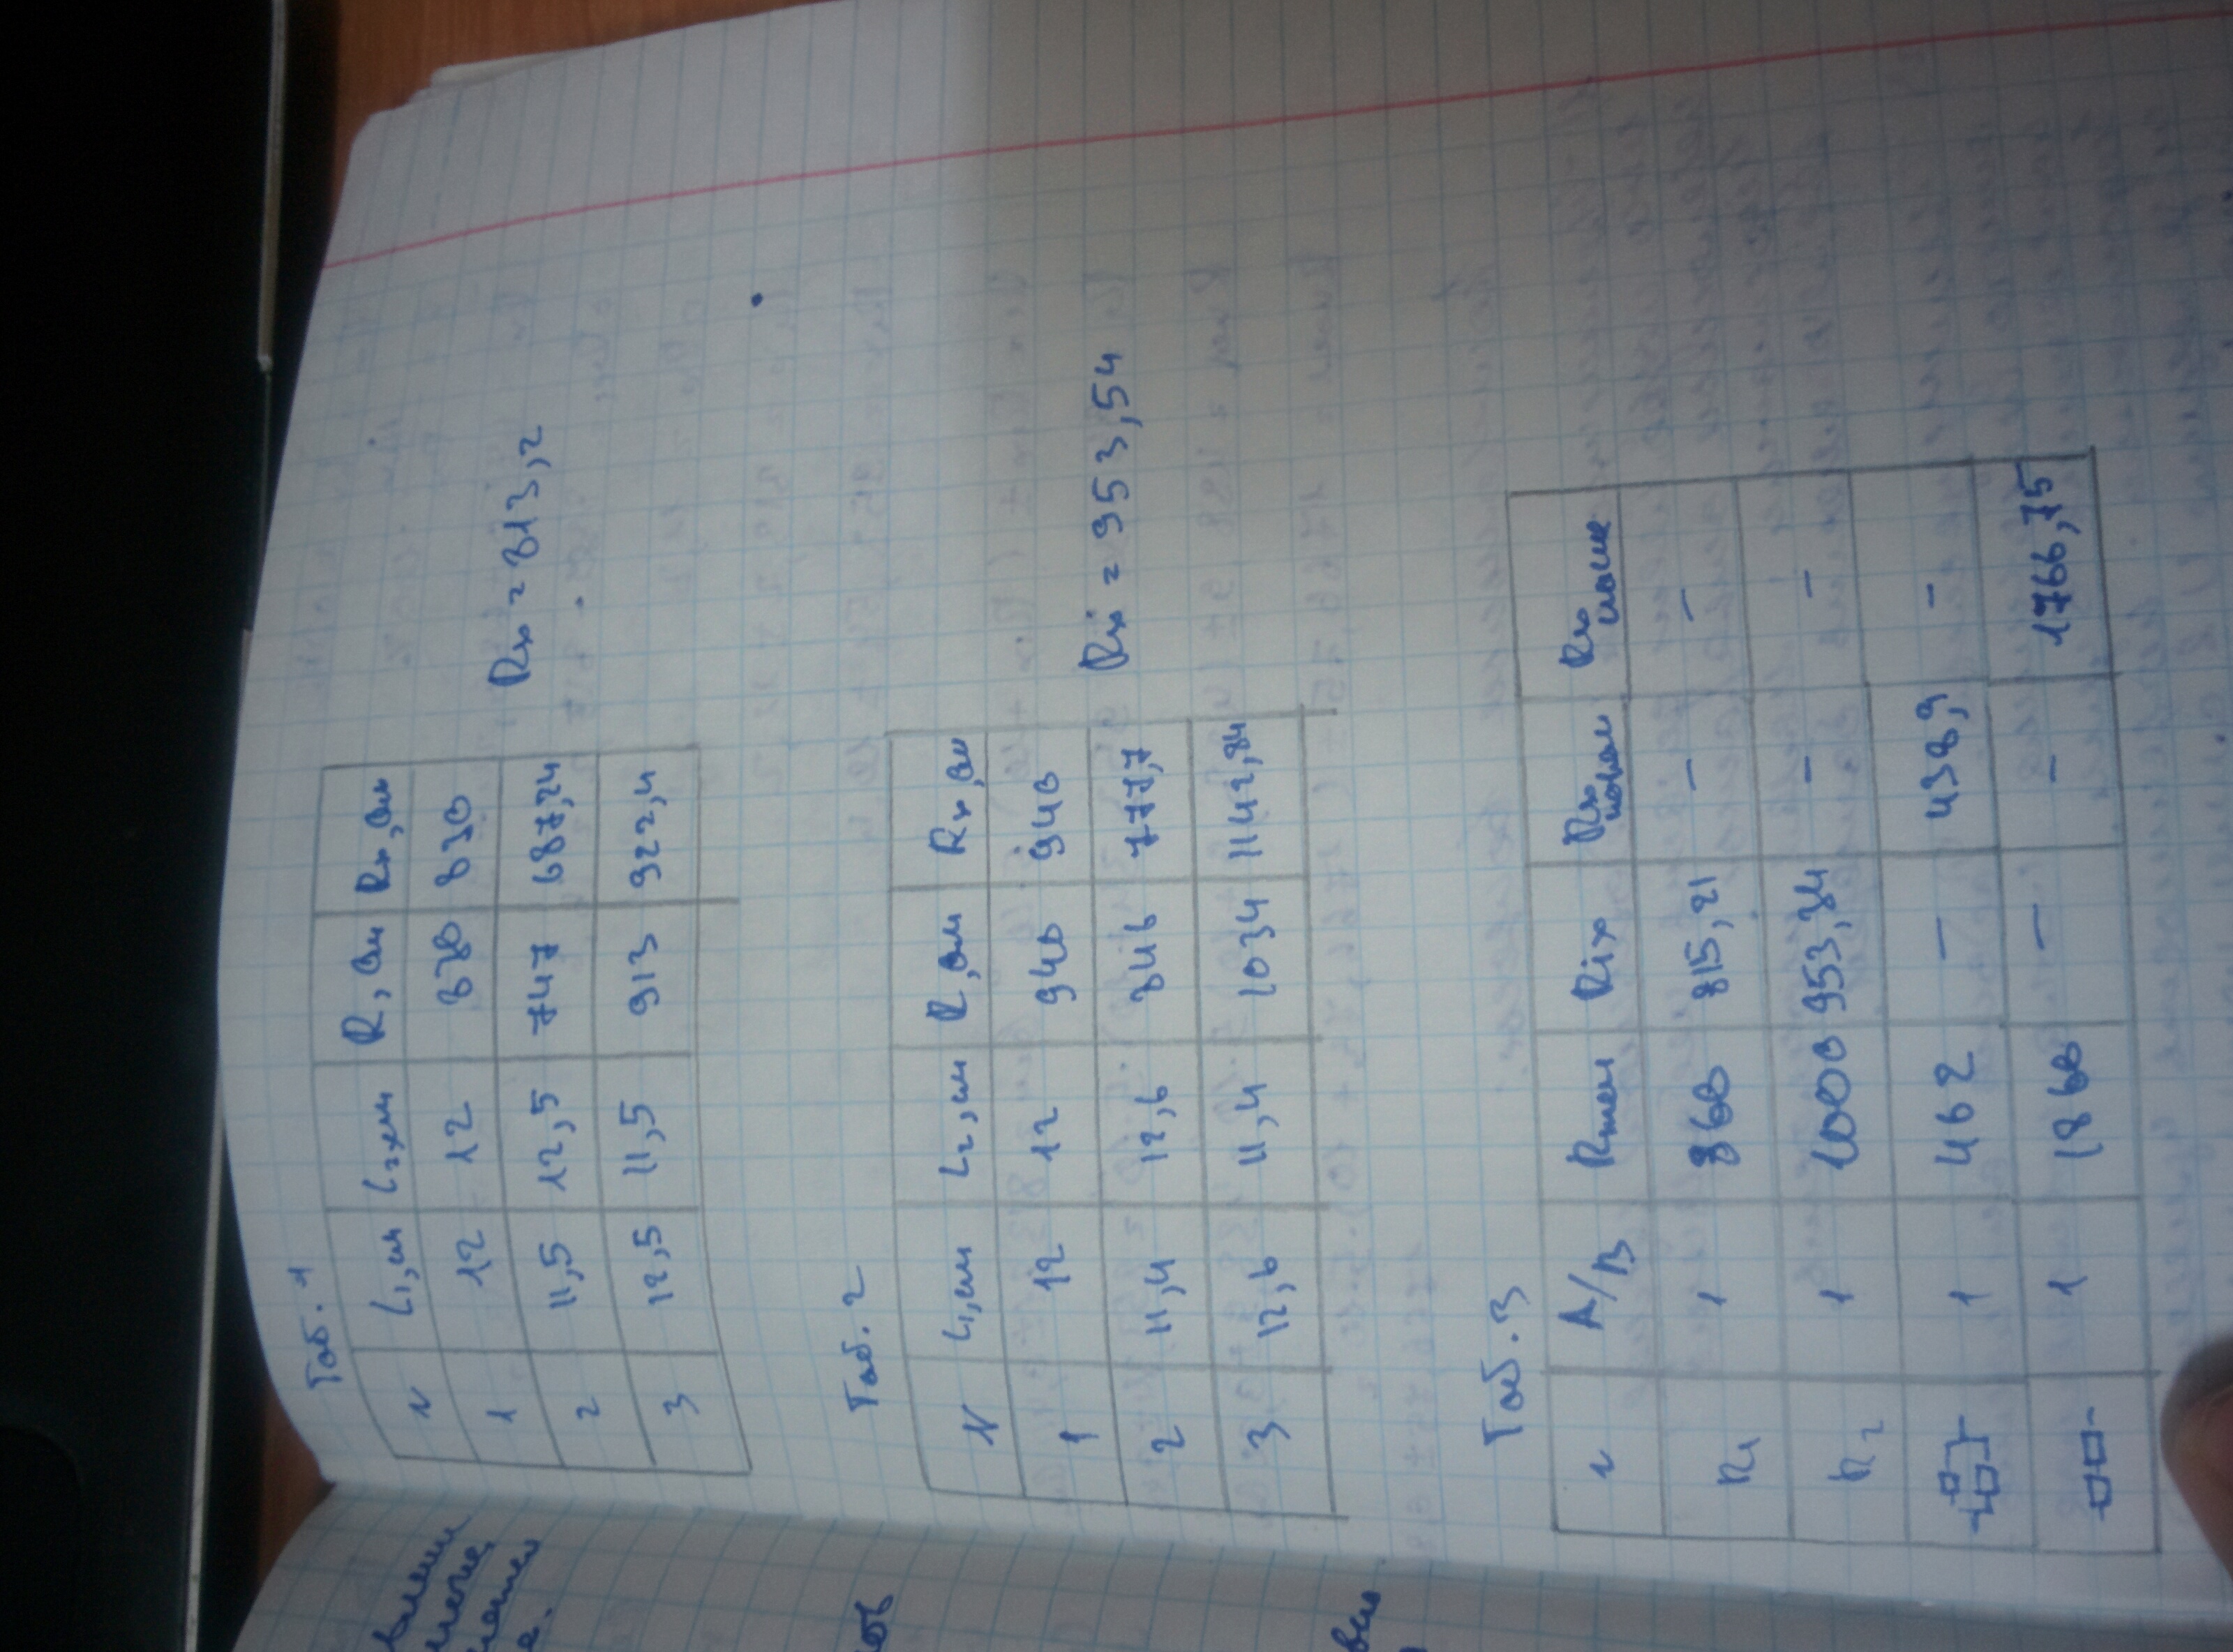 Таб. 1
N L₁,см L₂,см R, Ом Rx, Ом
1 12 12 830 830
2 11,5 12,5 747 687,24
3 12,5 11,5 913 922,4
Rx = 813,2
Таб. 2
N L₁,см L₂,см R, Ом Rx, Ом
1 12 12 940 940
2 11,4 12,6 846 777,7
3 12,6 11,4 1034 1142,84
Rx = 953,54
Таб. 3
N A/B Rтеп Rix Rx Rx
R₁ 1 860 815,21 – –
R₂ 1 1000 953,84 – –
1 462 – 438,9 –
1 1860 – – 1766,75